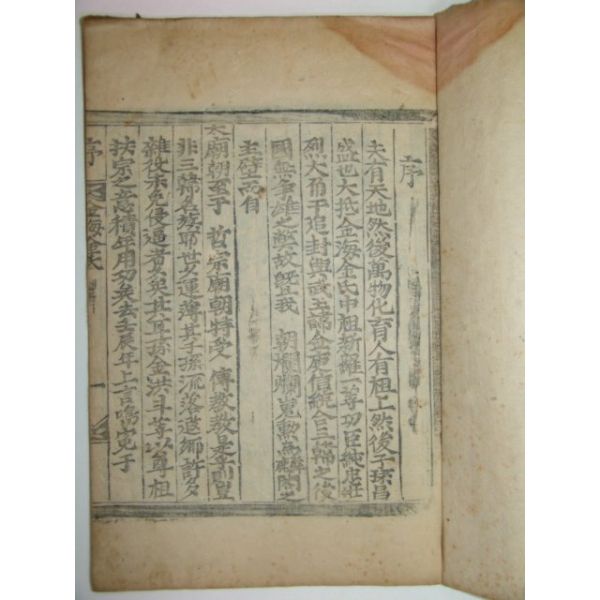 序
夫有天地然後萬物化育人有祖上然後子孫昌
盛也大抵金海金氏中祖新羅一等功臣純忠壯
烈大角干追封興武王諡金庾信統合三韓之後
國無爭雄之獘故曁我 朝爛爛嵬勳爲麟閣之
主壁而自
太廟朝至于 哲宗廟朝特受 傳敎敎是則豈
非三韓名族耶世久運薄其子孫流落遐鄕許多
雜役未免侵逼者久矣其耳孫金洪斗等以尊祖
扶宗之意積年用功矣去壬辰年上言鳴寃于
序 金海金氏 一